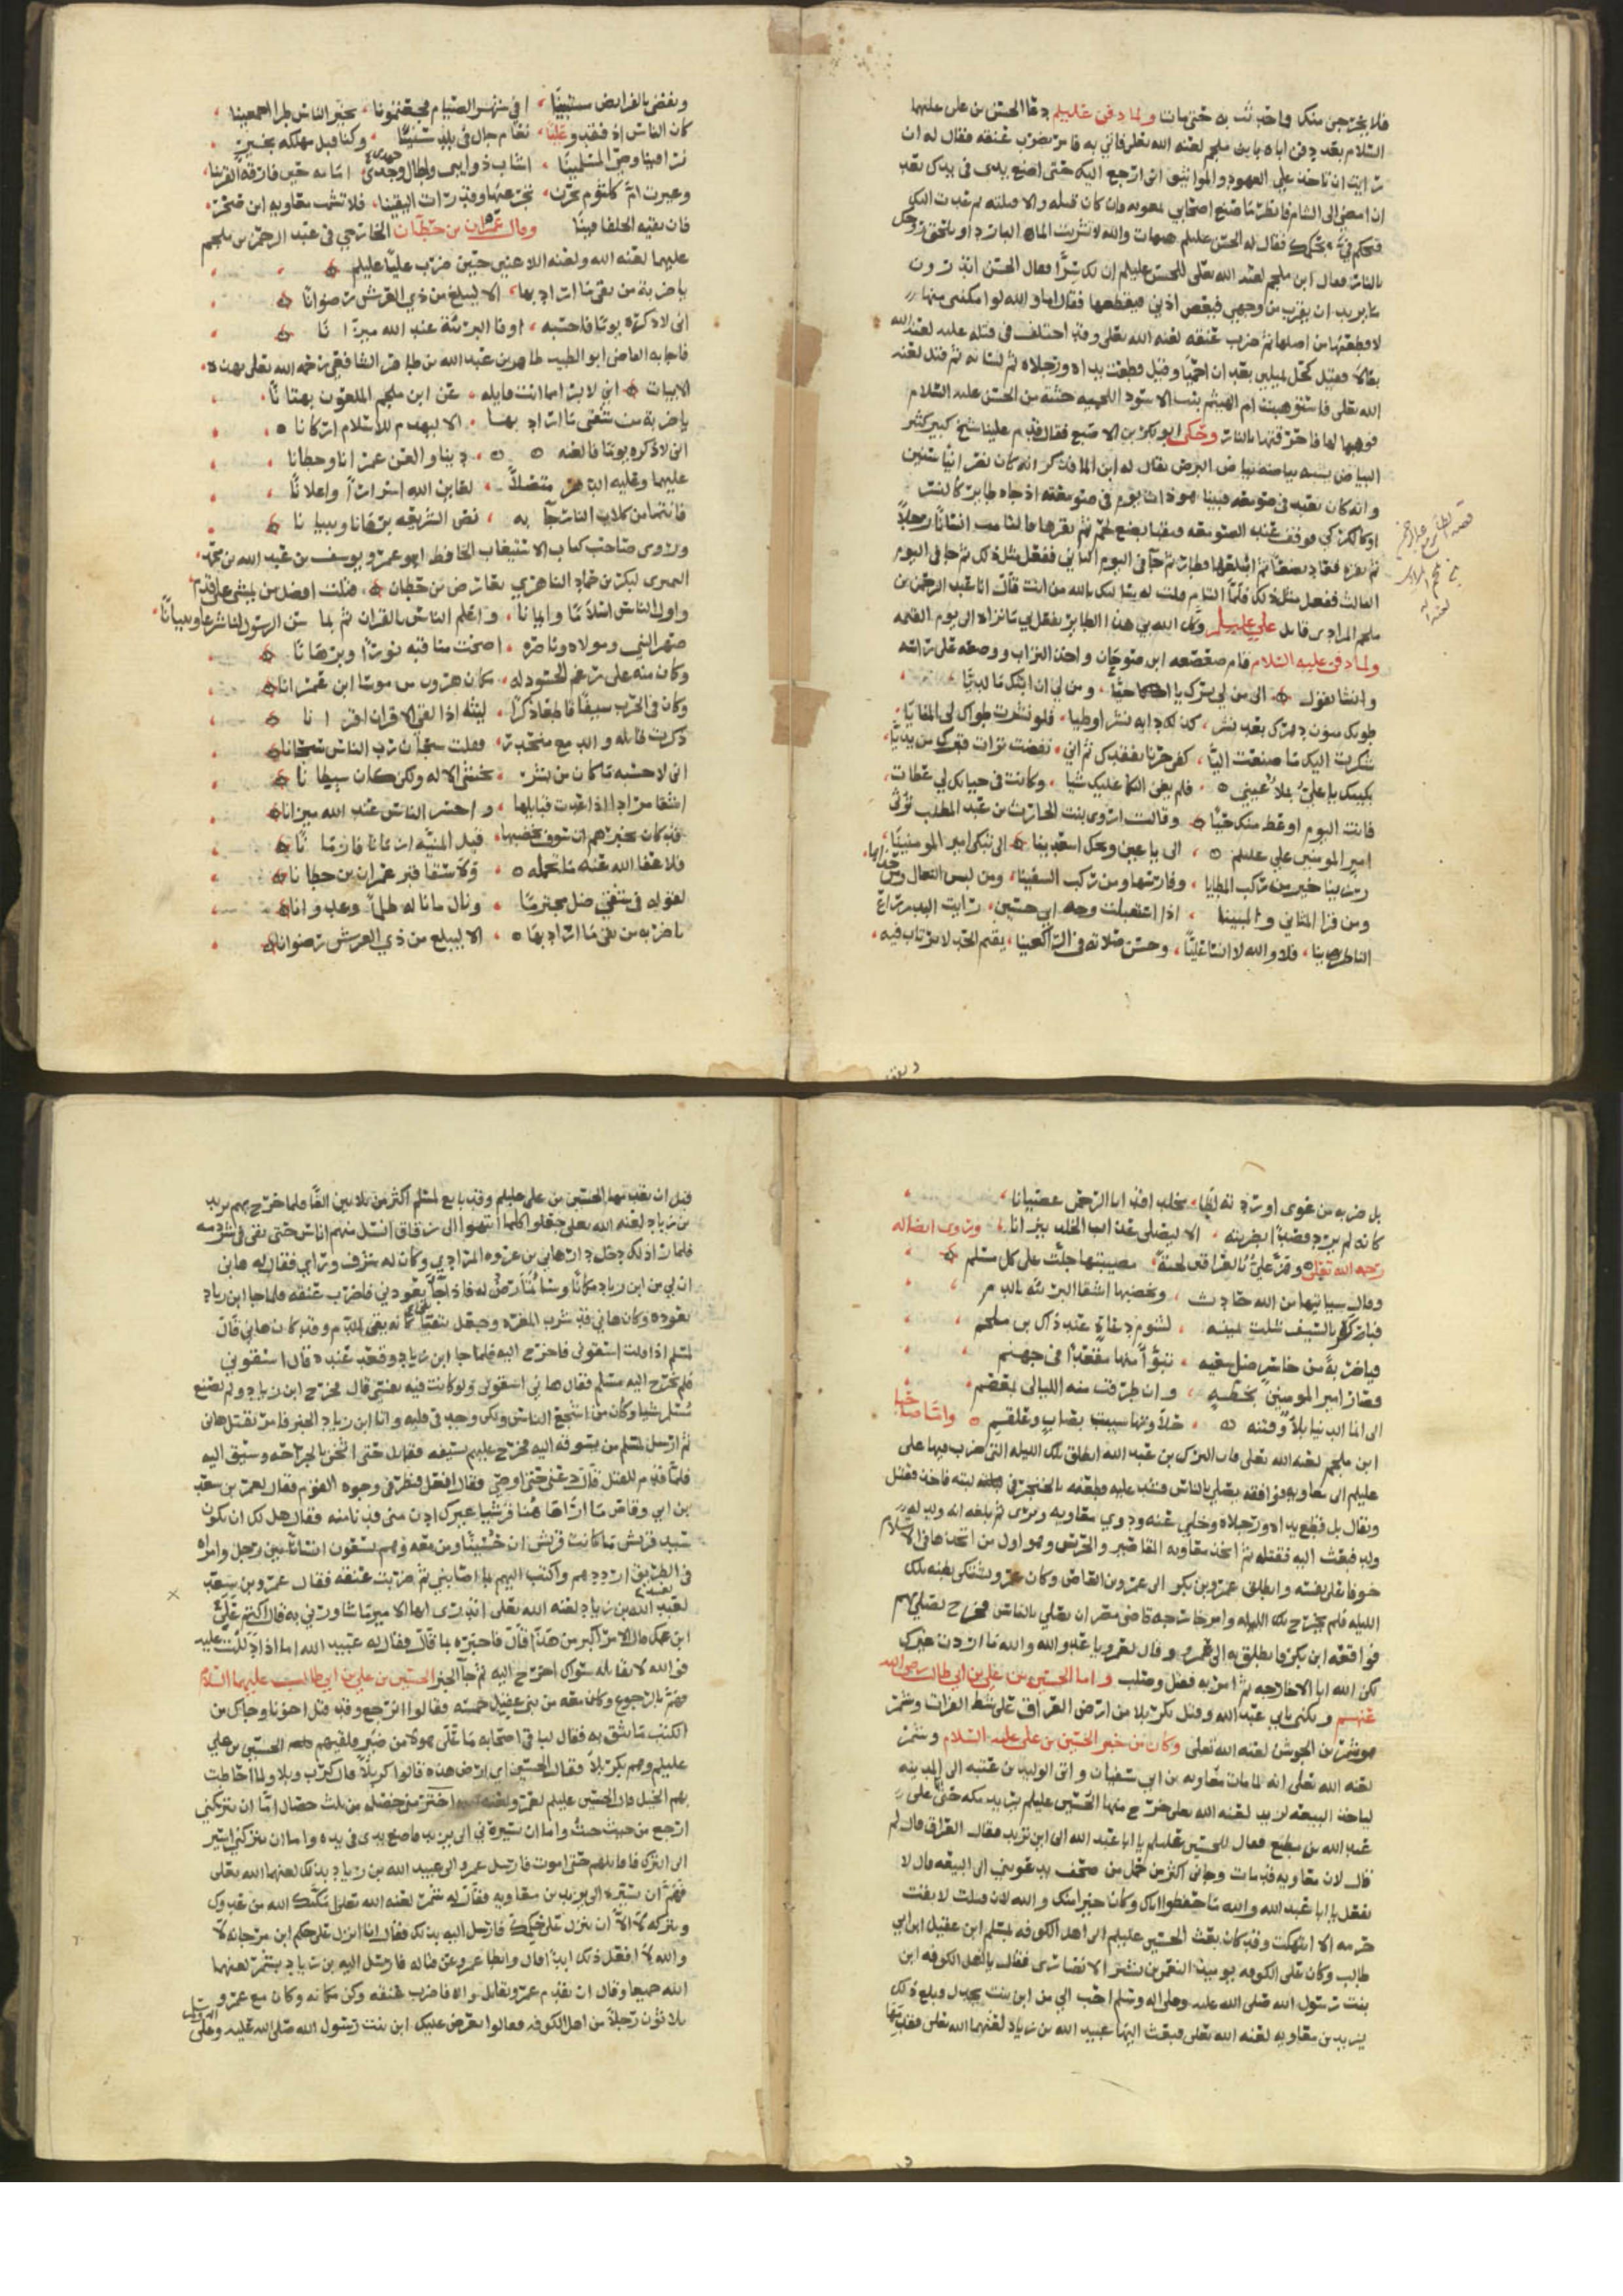 فلا يخرجن منكن واحدثت به حتى مات ولما دفن عليلم دعا الحسن بن على عليهما
السلام بعد دفن اباه بابن ملجم لعنه الله تعلى فاتي به فامر بضرب عنقه فقال له ان
رايت ان تاخذ علي العهود والمواثيق انى ارجع اليك حتى اضع يدى في يدك بعد
ان امضى الى الشام فانظر ما صنع اصحابي بمعويه فان كان قتله والا قتلته ثم عدت اليك
فتحكم في بحكمك فقال له الحسن عليلم هيهات والله لا تشرب الماء البارد او تلحق روحك
بالنار فقال ابن ملجم لعنه الله تعلى للحسن عليلم ان لك سرًّا فقال الحسن اتدرون
ما يريد يريد ان يقرب من وجهي فيعض اذني فيقطعها فقال اما والله لو امكننى منها
لاقطعتها من اصلها ثم ضرب عنقه لعنه الله تعلى وقد اختلف في قتله عليه لعنة الله
فقيل كحل بميلين بعد ان احميا وقيل قطعت يداه ورجلاه ثم لسانه ثم قتل لعنه
الله تعلى فاستوهبت ام الهيثم بنت الاسود جثته من الحسن عليه السلام
فوهبها لها فاحرقتها بالنار وحكى ابو بكر بن الاصبع فقال قدم علينا شيخ كبير كثير
البياض
وانه كان يتعبد في صومعه فبينا هو ذات يوم في صومعته اذ جاه طاير كالنسر
او كالكركي فوقف عند الصومعه
ثم جا في اليوم الثاني ففعل مثل ذلك ثم جا في اليوم
الثالث ففعل مثل ذلك فلما قلت له سالتك بالله من انت قال انا عبد الرحمن بن
ملجم المرادي قاتل علي عليلم وكل الله بي هذا الطاير يفعل بي ما تراه الى يوم القيمه
ولما دفن عليه السلام قام صعصعه ابن صوحان واخذ التراب ووضعه على راسه
وانشا يقول الى من لي بسرك يا اخيا ومن لي ان ابثك ما لديّا
طوتك منون دهرك بعد نشر كذلك دابه نشر اوطيا فلو نشرت طواك لي المنايا
شكوت اليك ما صنعت اليّا كفى حزنا بفقدك ثم اني نفضت تراب قبرك من يديّا
بكيتك يا علي بملأ عيني فلم يغن البكا عليك شيا وكانت في حياتك لي عظات
فانت اليوم اوعظ منك حيّا وقالت اروى بنت الحارث بن عبد المطلب ترثي
امير المومنين علي عليلم الى يا عين ويحك اسعدينا الى تبكي امير المومنينا
رزينا خير من ركب المطايا وفارسها ومن ركب السفينا ومن لبس النعال ومن حذاها
ومن قرا المثاني والمبينا اذا استقبلت وجه ابي حسين رايت البدر راع
الناظرينا فلا والله لا انسا عليّا وحسن صلاته في الراكعينا يقيم الحد لا يرتاب فيه
قصه الطاير مع عبد الرحمن بن ملجم المرادي لعنه الله
ويقضي بالفرايض مستبينًا افي شهر الصيام فجعتمونا بخير الناس طرا اجمعينا
كان الناس اذ فقدو عليًا نعام جال في بلد سنينًا وكنا قبل مهلكه بخير
نرا فينا وصي المسلمينًا اشاب ذوايبي واطال حزني امامه حين فارقه القرينا
وعبرت ام كلثوم بحزن فلا تشمت معاويه ابن صخر
فان بقيه الخلفا فينًا وقال عمران بن حطان الخارجي في عبد الرحمن بن ملجم
عليهما لعنه الله ولعنه اللاعنين حين ضرب عليًا عليلم
يا ضربة من تقي ما اراد بها الا ليبلغ من ذي العرش رضوانًا
انى لاذكره يومًا فاحسبه اوفا البريّة عند الله ميزانًا
فاجابه القاضي ابو الطيب طاهر بن عبد الله بن طاهر الشافعي رحمه الله تعلى بهذه
الابيات اني لابرا مما انت قايله عن ابن ملجم الملعون بهتانًا
يا ضربة من شقي ما اراد بها الا ليهدم للاسلام اركانا
انى لاذكره يومًا فالعنه دينا والعن عمرانا وحطانا
عليهما وعليه الدهر متصلاً لعاين الله اسرارًا واعلانًا
فانتما من كلاب النار جآ به نص الشريعه برهانا وتبيانا
وروى صاحب كتاب الاستيعاب الحافظ ابو عمرو يوسف بن عبد الله بن محمد
النمري لبكر بن حماد التاهرتي يعارض بن حطان قتلت افضل من يمشي على قدم
واول الناس اسلامًا وايمانا واعلم الناس بالقران ثم بما سن الرسول لنا شرعا وتبيانًا
صهر النبي ومولاه وناصره اضحت مناقبه نورًا وبرهانًا
وكان منه على رغم الحسود له مكان هرون من موسا ابن عمرانا
وكان في الحرب سيفًا قاطعا ذكرًا ليثه اذا لقي الاقران اقرانا
ذكرت قاتله والدمع منحدر فقلت سبحان رب الناس سبحانا
انى لاحسبه ما كان من بشر يخشى الاله ولكن كان شيطانا
اشقا مراد اذا عدت قبايلها واخسر الناس عند الله ميزانا
قد كان يخبرهم ان سوف يخضبها قبل المنيّه ازمانا فازمانًا
فلا عفا الله عنه ما تحمله ولا سقا قبر عمران بن حطانا
لقوله في شقي ضل مجترمًا ونال ما ناله ظلماً وعدوانا
يا ضربه من تقي ما اراد بها الا ليبلغ من ذي العرش رضوانا
بل ضربه من غوى اوردته لظا مخلد اقد اتا الرحمن عصيانا
كانه لم يرد قصدًا بضربته الا ليصلي عذاب الخلد نيرانا وروى ايضا له
رحمه الله تعلى وهزّ عليّ بالعراقين لحية مصيبتها جلّت على كل مسلم
وقال سياتيها من الله حادث ويخضبها اشقا البريّه بالدم
فباكره بالسيف شلت يمينه لشوم دعاه عند ذاك بن ملجم
فياضربةً من خاسر ضل سعيه تبوّأ منها مقعدًا في جهنم
ففاز امير المومنين بحظه وان طرقت منه الليالي بمعظم
الى انما الدنيا بلاءً وفتنه حلاوتها شيبت بصاب وعلقم واما صاحبا
ابن ملجم لعنه الله تعلى فان البرك بن عبد الله انطلق تلك الليله التى ضرب فيها على
عليلم الى معاويه فوافقه يصلي بالناس فشد عليه فطعنه بالخنجر في اليته فاخذ فقتل
ويقال بل قطع يداه ورجلاه وخلي عنه ودوي معاويه وبرى ثم بلغه انه ولد له
ولد فبعث اليه فقتله ثم اتخذ معاويه المقاصير والحرس وهو اول من اتخذها في الاسلام
خوفا على نفسه وانطلق عمرو بن بكر الى عمرو بن العاص وكان عمرو يشتكي بطنه تلك
الليله فلم يخرج تلك الليله وامر خارجه قاضي مصر ان يصلي بالناس فخرج ليصلي بهم
فوافقه ابن بكر فانطلق به الى عمرو وقال لعمرو يا عدو الله والله ما اردت غيرك
لكن الله ابا الا خارجه ثم امر به فقتل وصلب واما الحسين بن علي بن ابي طالب رضى الله
عنهم ويكنى بابي عبد الله وقتل بكربلا من ارض العراق على شط الفرات وشمر
هو شمر بن الجوشن لعنه الله تعلى وكان من خبر الحسين بن على عليه السلام وشمر
لعنه الله تعلى انه لما مات معاويه بن ابي سفيان واتى الوليد بن عتبه الى المدينه
لياخذ البيعه ليزيد لعنه الله تعلى خرج منها الحسين عليلم يريد مكه حتى اتى على
عبد الله بن مطيع فقال للحسين عليلم يا ابا عبد الله الى اين تريد فقال العراق قال لم
قال لان معاويه قد مات وجاني اكثر من حمل من صحف يدعونني الى البيعه قال لا
تفعل يا ابا عبد الله والله ما حفظوا اباك وكان خيرا منك والله لان قتلت لا بقيت
حرمه الا انتهكت وقد كان بعث الحسين عليلم الى اهل الكوفه بمسلم ابن عقيل ابن ابي
طالب وكان على الكوفه يوميذ النعمن بن بشير الانصاري فقال يا اهل الكوفه ابن
بنت رسول الله صلى الله عليه وعلى اله وسلم احب الي من ابن بنت بجدل وبلغ ذلك
يزيد بن معاويه لعنه الله تعلى فبعث اليها عبيد الله بن زياد لعنهما الله تعلى فقدمها
قبل ان يقدمها الحسين بن على عليلم وقد بايع لمسلم اكثر من ثلاثين الفًا فلما خرج بهم يريد
بن زياد لعنه الله تعلى جعلوا كلما انتهوا الى زقاق انسل منهم اناس حتى بقى في شرذمه
فلما راى ذلك دخل دار هاني بن عروه المرادي وكان له شرف وراي فقال له هاني
ان لي من ابن زياد مكانًا وسأتمارض له فاذا جآ يعودني فاضرب عنقه فلما جا ابن زياد
يعوده وكان هاني قد شرب المغره وجعل يتقيا كانه يقي الدم وقد كان هاني قال
لمسلم اذا قلت اسقوني فاخرج اليه فلما جا ابن زياد وقعد عنده قال اسقوني
فلم يخرج اليه مسلم فقال هاني اسقوني ولو كانت فيه نفسى قال فخرج ابن زياد ولم يصنع
مسلم شيا وكان من اشجع الناس ولكن وجد في قلبه واتا ابن زياد الخبر فامر بقتل هاني
ثم ارسل لمسلم من يسوقه اليه فخرج عليهم بسيفه فقاتل حتى اثخن بالجراحه وسيق اليه
فلما قدم للقتل قال دعني حتى اوصي فقال افعل فنظر في وجوه القوم فقال لعمر بن سعد
بن ابي وقاص ما ارا هاهنا قرشيا غيرك ادن منى فدنا منه فقال هل لك ان تكون
سيد قريش ما كانت قريش ان حسينًا ومن معه وهم تسعون انسانًا بين رجل وامراه
في الطريق ارددهم واكتب اليهم بما اصابني ثم ضربت عنقه فقال عمرو بن سعد
لعبيد الله بن زياد لعنه الله تعلى اتدري ايها الامير ما شاورني به قال اكتم على
ابن عمك قال الامر اكبر من هذا قال فاخبره بما قال فقال له عبيد الله اما اذا دللت عليه
فوالله لا يقاتله سواك اخرج اليه ثم جآ الخبر الحسين بن علي بن ابي طالب عليهما السلام
فهم بالرجوع وكان معه من بني عقيل خمسه فقالوا اترجع وقد قتل اخونا وجاك من
الكتب ما تثق به فقال لبعض اصحابه ما على هولا من صبر فلقيهم الحسين بن علي
عليلم وهم بكربلا فقال الحسين اي ارض هذه قالوا كربلاً قال كرب وبلا ولما احاطت
بهم الخيل قال الحسين عليلم لعمرو لعنه الله اختر مني خصله من ثلث خصال امّا ان تتركني
ارجع من حيث جيت واما ان تسيرني الى يزيد فاضع يدى في يده واما ان تتركني اسير
الى الترك فاقاتلهم حتى اموت فارسل عمرو الى عبيد الله بن زياد بذلك لعنهما الله تعلى
فهم ان يسيره الى يزيد بن معاويه فقال له شمر لعنه الله تعلى امكنك الله من عدوك
وتتركه لا الا ان ينزل على حكمك فارسل اليه بذلك فقال انا انزل على حكم ابن مرجانه لا
والله لا افعل ذلك ابدًا قال وابطا عمرو عن قتاله فارسل اليه بن زياد بشمر لعنهما
الله جميعا وقال ان تقدم عمرو يقاتل والا فاضرب عنقه وكن مكانه وكان مع عمرو
ثلاثون رجلاً من اهل الكوفه فقالوا يعرض عليك ابن بنت رسول الله صلى الله عليه وعلى اله وسلم